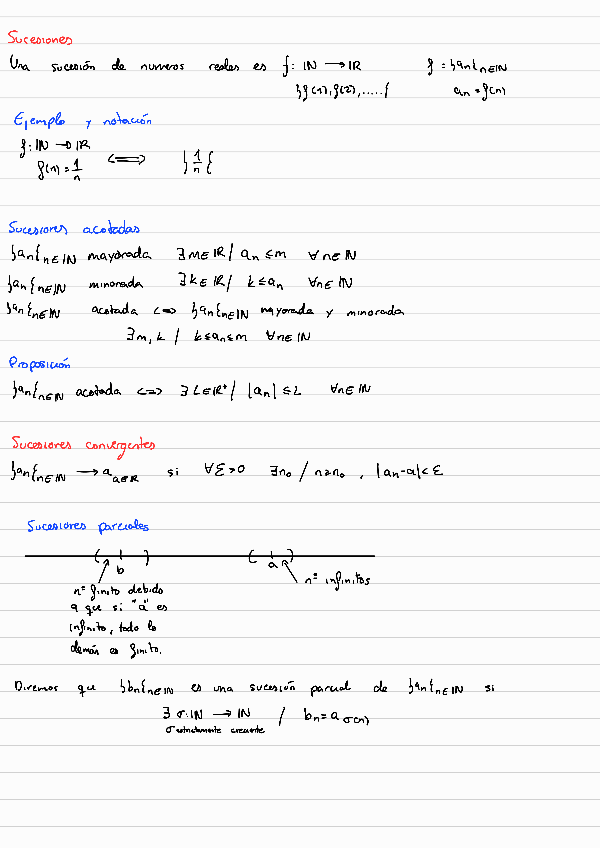 Sucesiones
Una sucesión de numeros reales es f: IN → IR   f = }an{n∈IN
}f(1), f(2), .....{   an = f(n)
Ejemplo y notación
f: IN → IR
f(n) = 1/n ⟺ }1/n{
Sucesiones acotadas
}an{n∈IN mayorada ∃ m∈IR / an ≤ m ∀n∈IN
}an{n∈IN minorada ∃ k∈IR / k ≤ an ∀n∈IN
}an{n∈IN acotada <=> }an{n∈IN mayorada y minorada
∃ m, k / k ≤ an ≤ m ∀n∈IN
Proposición
}an{n∈IN acotada <=> ∃ L∈IR⁺ / |an| ≤ L ∀n∈IN
Sucesiones convergentes
}an{n∈IN → a a∈IR si ∀ε>0 ∃n₀ / n≥n₀ , |an-a| < ε
Sucesiones parciales
b   a
nº finito debido   nº infinitos
a que si "a" es
infinito, todo lo
demás es finito.
Diremos que }bn{n∈IN es una sucesión parcial de }an{n∈IN si
∃ σ: IN → IN / bn = a σ(n)
σ estrictamente creciente